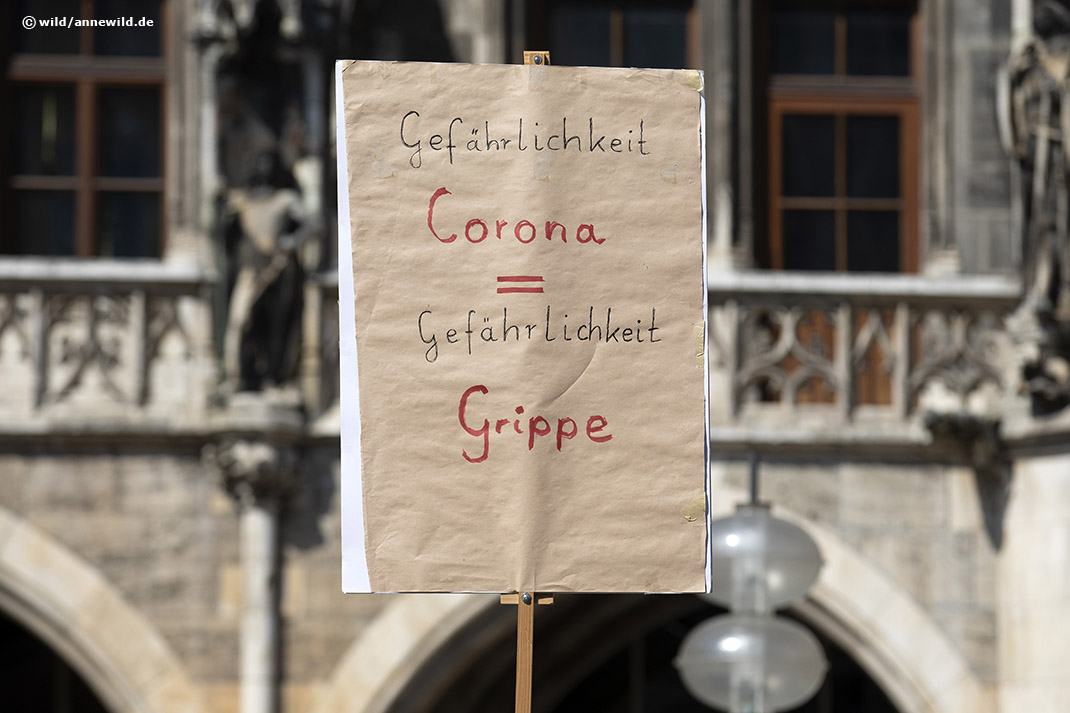 © wild/annewild.de
Gefährlichkeit
Corona
=
Gefährlichkeit
Grippe